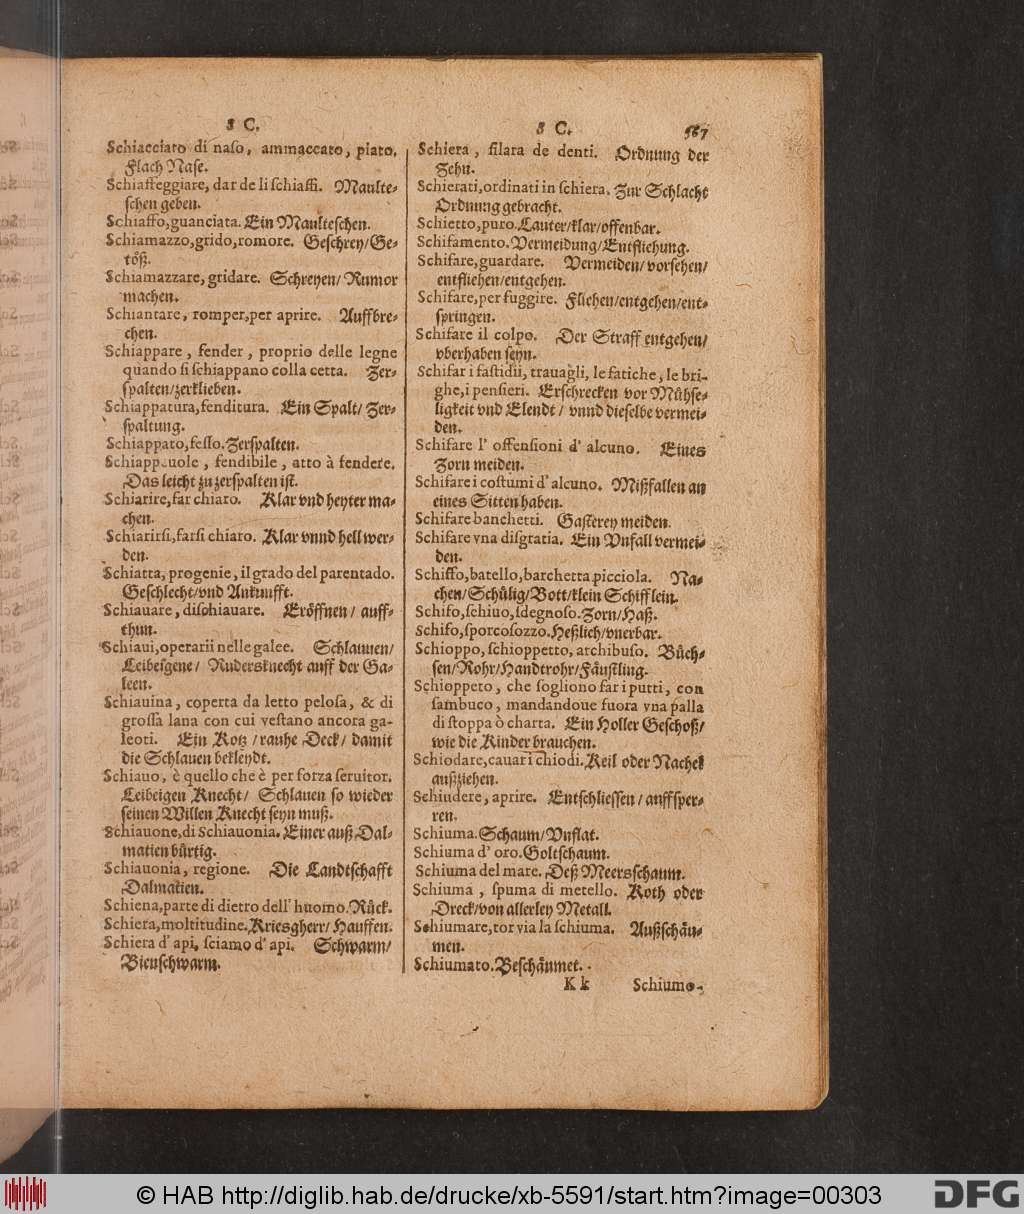 S C.
Schiacciato di naso, ammaccato, piato.
Flach Nase.
Schiaffeggiare, dar de li schiaffi. Maulte-
schen geben.
Schiaffo, guanciata. Ein Maulteschen.
Schiamazzo, grido, romore. Geschrey/Ge-
töß.
Schiamazzare, gridare. Schreyen/ Rumor
machen.
Schiantare, romper, per aprire. Auffbre-
chen.
Schiappare, fender, proprio delle legne
quando si schiappano colla cetta. Zer-
spalten/zerklieben.
Schiappatura, fenditura. Ein Spalt/ Zer-
spaltung.
Schiappato, fesso. Zerspalten.
Schiappeuole, fendibile, atto à fendere.
Das leicht zu zerspalten ist.
Schiarire, far chiaro. Klar vnd heyter ma-
chen.
Schiarirsi, farsi chiaro. Klar vnnd hell wer-
den.
Schiatta, progenie, il grado del parentado.
Geschlecht/vnd Ankunfft.
Schiauare, dischiauare. Eröffnen/ auff-
thun.
Schiaui, operarii nelle galee. Schlauen/
Leibeigene/ Rudersknecht auff der Ga-
leen.
Schiauina, coperta da letto pelosa, & di
grossa lana con cui vestano ancora ga-
leoti. Ein Kotz/rauhe Deck/ damit
die Schlauen bekleydt.
Schiauo, è quello che è per forza seruitor.
Leibeigen Knecht/ Schlauen so wieder
seinen Willen Knecht seyn muß.
Schiauone, di Schiauonia. Einer auß Dal-
matien bürtig.
Schiauonia, regione. Die Landtschafft
Dalmatien.
Schiena, parte di dietro dell' huomo. Rück.
Schiera, moltitudine. Kriesgherr/ Hauffen.
Schiera d' api, sciamo d' api. Schwarm/
Bienschwarm.
S C. 567
Schiera, filara de denti. Ordnung der
Zehn.
Schierati, ordinati in schiera. Zur Schlacht
Ordnung gebracht.
Schietto, puro. Lauter/klar/offenbar.
Schifamento. Vermeidung/Entfliehung.
Schifare, guardare. Vermeiden/vorsehen/
entfliehen/entgehen.
Schifare, per fuggire. Fliehen/entgehen/ent-
springen.
Schifare il colpo. Der Straff entgehen/
vberhaben seyn.
Schifar i fastidii, trauagli, le fatiche, le bri-
ghe, i pensieri. Erschrecken vor Mühse-
ligkeit vnd Elendt/ vnnd dieselbe vermei-
den.
Schifare l' offensioni d' alcuno. Eines
Zorn meiden.
Schifare i costumi d' alcuno. Mißfallen an
eines Sitten haben.
Schifare banchetti. Gasterey meiden.
Schifare vna disgratia. Ein Vnfall vermei-
den.
Schiffo, batello, barchetta picciola. Na-
chen/Schülig/Bott/klein Schifflein.
Schifo, schiuo, sdegnoso. Zorn/Haß.
Schifo, sporco sozzo. Heßlich/vnerbar.
Schioppo, schioppetto, archibuso. Büch-
sen/Rohr/Handtrohr/Fäustling.
Schioppeto, che sogliono far i putti, con
sambuco, mandandoue fuora vna palla
di stoppa ò charta. Ein Holler Geschoß/
wie die Kinder brauchen.
Schiodare, cauar i chiodi. Keil oder Nachel
außziehen.
Schiudere, aprire. Entschliessen/auffsper-
ren.
Schiuma. Schaum/Vnflat.
Schiuma d' oro. Goltschaum.
Schiuma del mare. Deß Meersschaum.
Schiuma, spuma di metello. Koth oder
Dreck/von allerley Metall.
Schiumare, tor via la schiuma. Außschäu-
men.
Schiumato. Beschäumet.
K k Schiumo-
© HAB http://diglib.hab.de/drucke/xb-5591/start.htm?image=00303
DFG